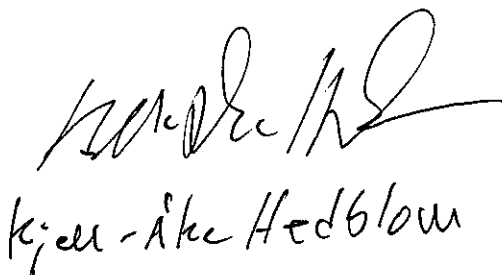 Kjell-Åke Hedblom